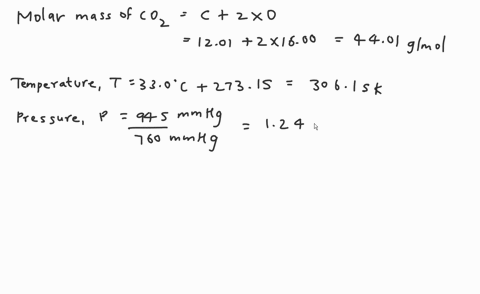 Molar mass of CO₂ = C + 2 x O
= 12.01 + 2 x 16.00 = 44.01 g/mol
Temperature, T = 33.0°C + 273.15 = 306.15K
Pressure, P = 945 mmHg / 760 mmHg = 1.24